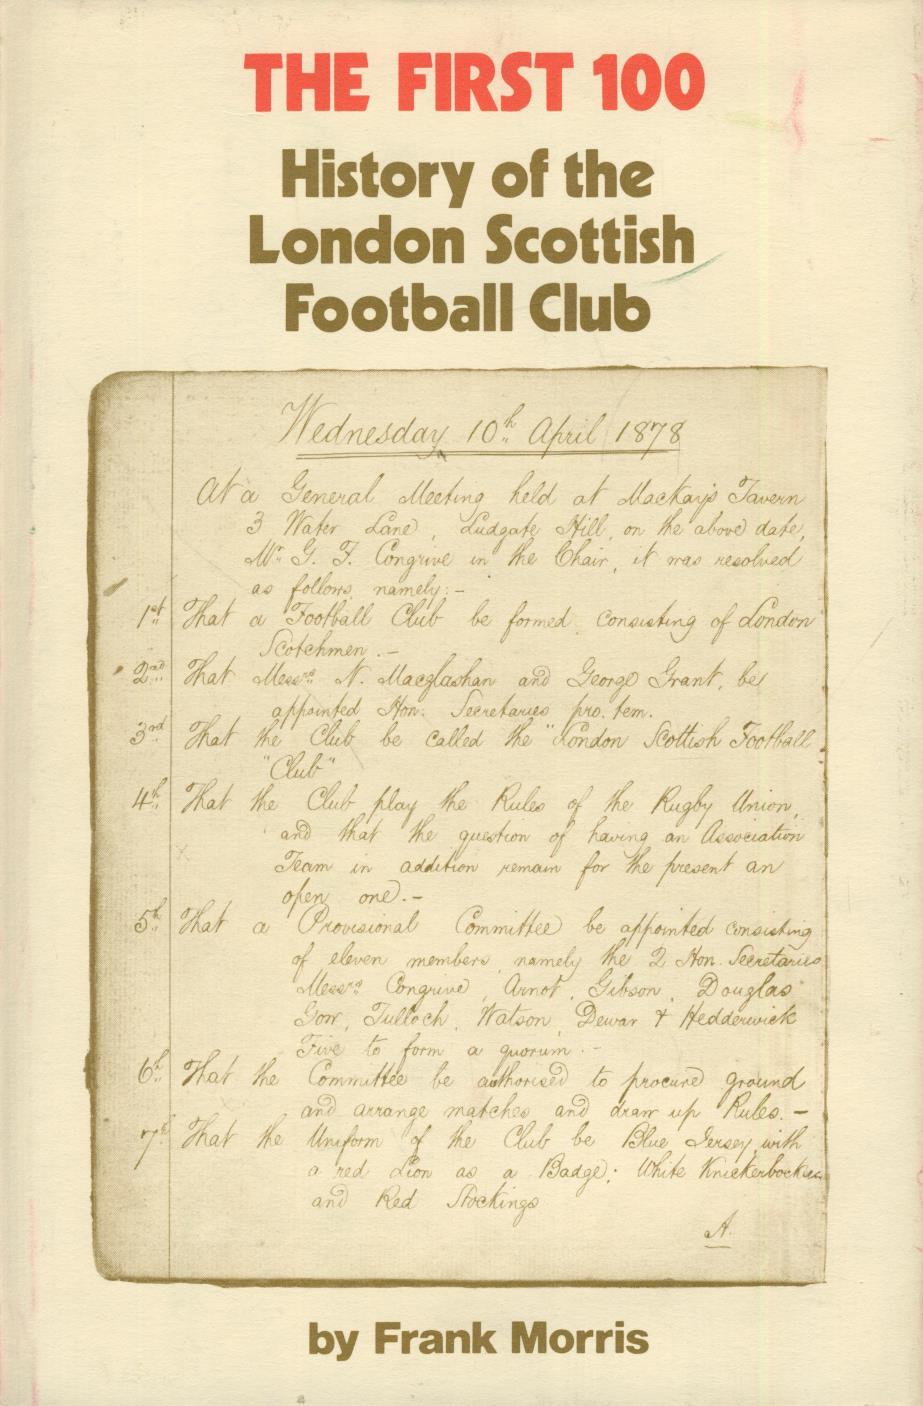 THE FIRST 100
History of the
London Scottish
Football Club
Wednesday 10th April 1878
At a General Meeting held at Mackay's Tavern
3 Water Lane, Ludgate Hill, on the above date,
Mr. G. F. Congrive in the Chair, it was resolved
as follows, namely:-
1st That a Football Club be formed consisting of London
Scotchmen.-
2nd That Messrs. N. Macglashan and George Grant, be
appointed Hon. Secretaries pro. tem.
3rd That the Club be called the "London Scottish Football
"Club"
4th That the Club play the Rules of the Rugby Union,
and that the question of having an Association
Team in addition remain for the present an
open one.-
5th That a Provisional Committee be appointed consisting
of eleven members, namely the 2 Hon. Secretaries
Messrs Congrive, Arnot, Gibson, Douglas
Gow, Tulloch, Watson, Dewar & Hedderwick
Five to form a quorum.-
6th That the Committee be authorised to procure ground
and arrange matches, and draw up Rules.-
7th That the Uniform of the Club be Blue Jersey, with
a red Lion as a Badge; White Knickerbockers
and Red Stockings
A.
by Frank Morris